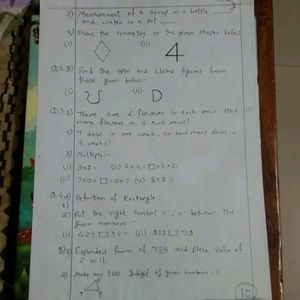 3) Measurement of a syrup in a bottle
and water in a pot
4) Show the symmetry in the given shapes below
(i) (ii) 4
Q.2.B) Find the open and closed figures from
those given below:-
(i) (ii) D
Q.3.1) There are 6 flowers in each row. How
many flowers in 4 such rows?
2) 7 days in one week, so how many days in
6 weeks?
3) Multiply:-
(i) 3×8= (ii) 2×4=□×2
(iii) 7×0=□=0×7 (iv) 8×8=
1) Definition of Rectangle
2) Put the right symbol < , > between the
given numbers.
(i) 427 □ 377 (ii) 823 □ 78
B) 1) Expanded form of 784 and place value of
2 in it.
2) Make any two 3 digit of given numbers:-
10